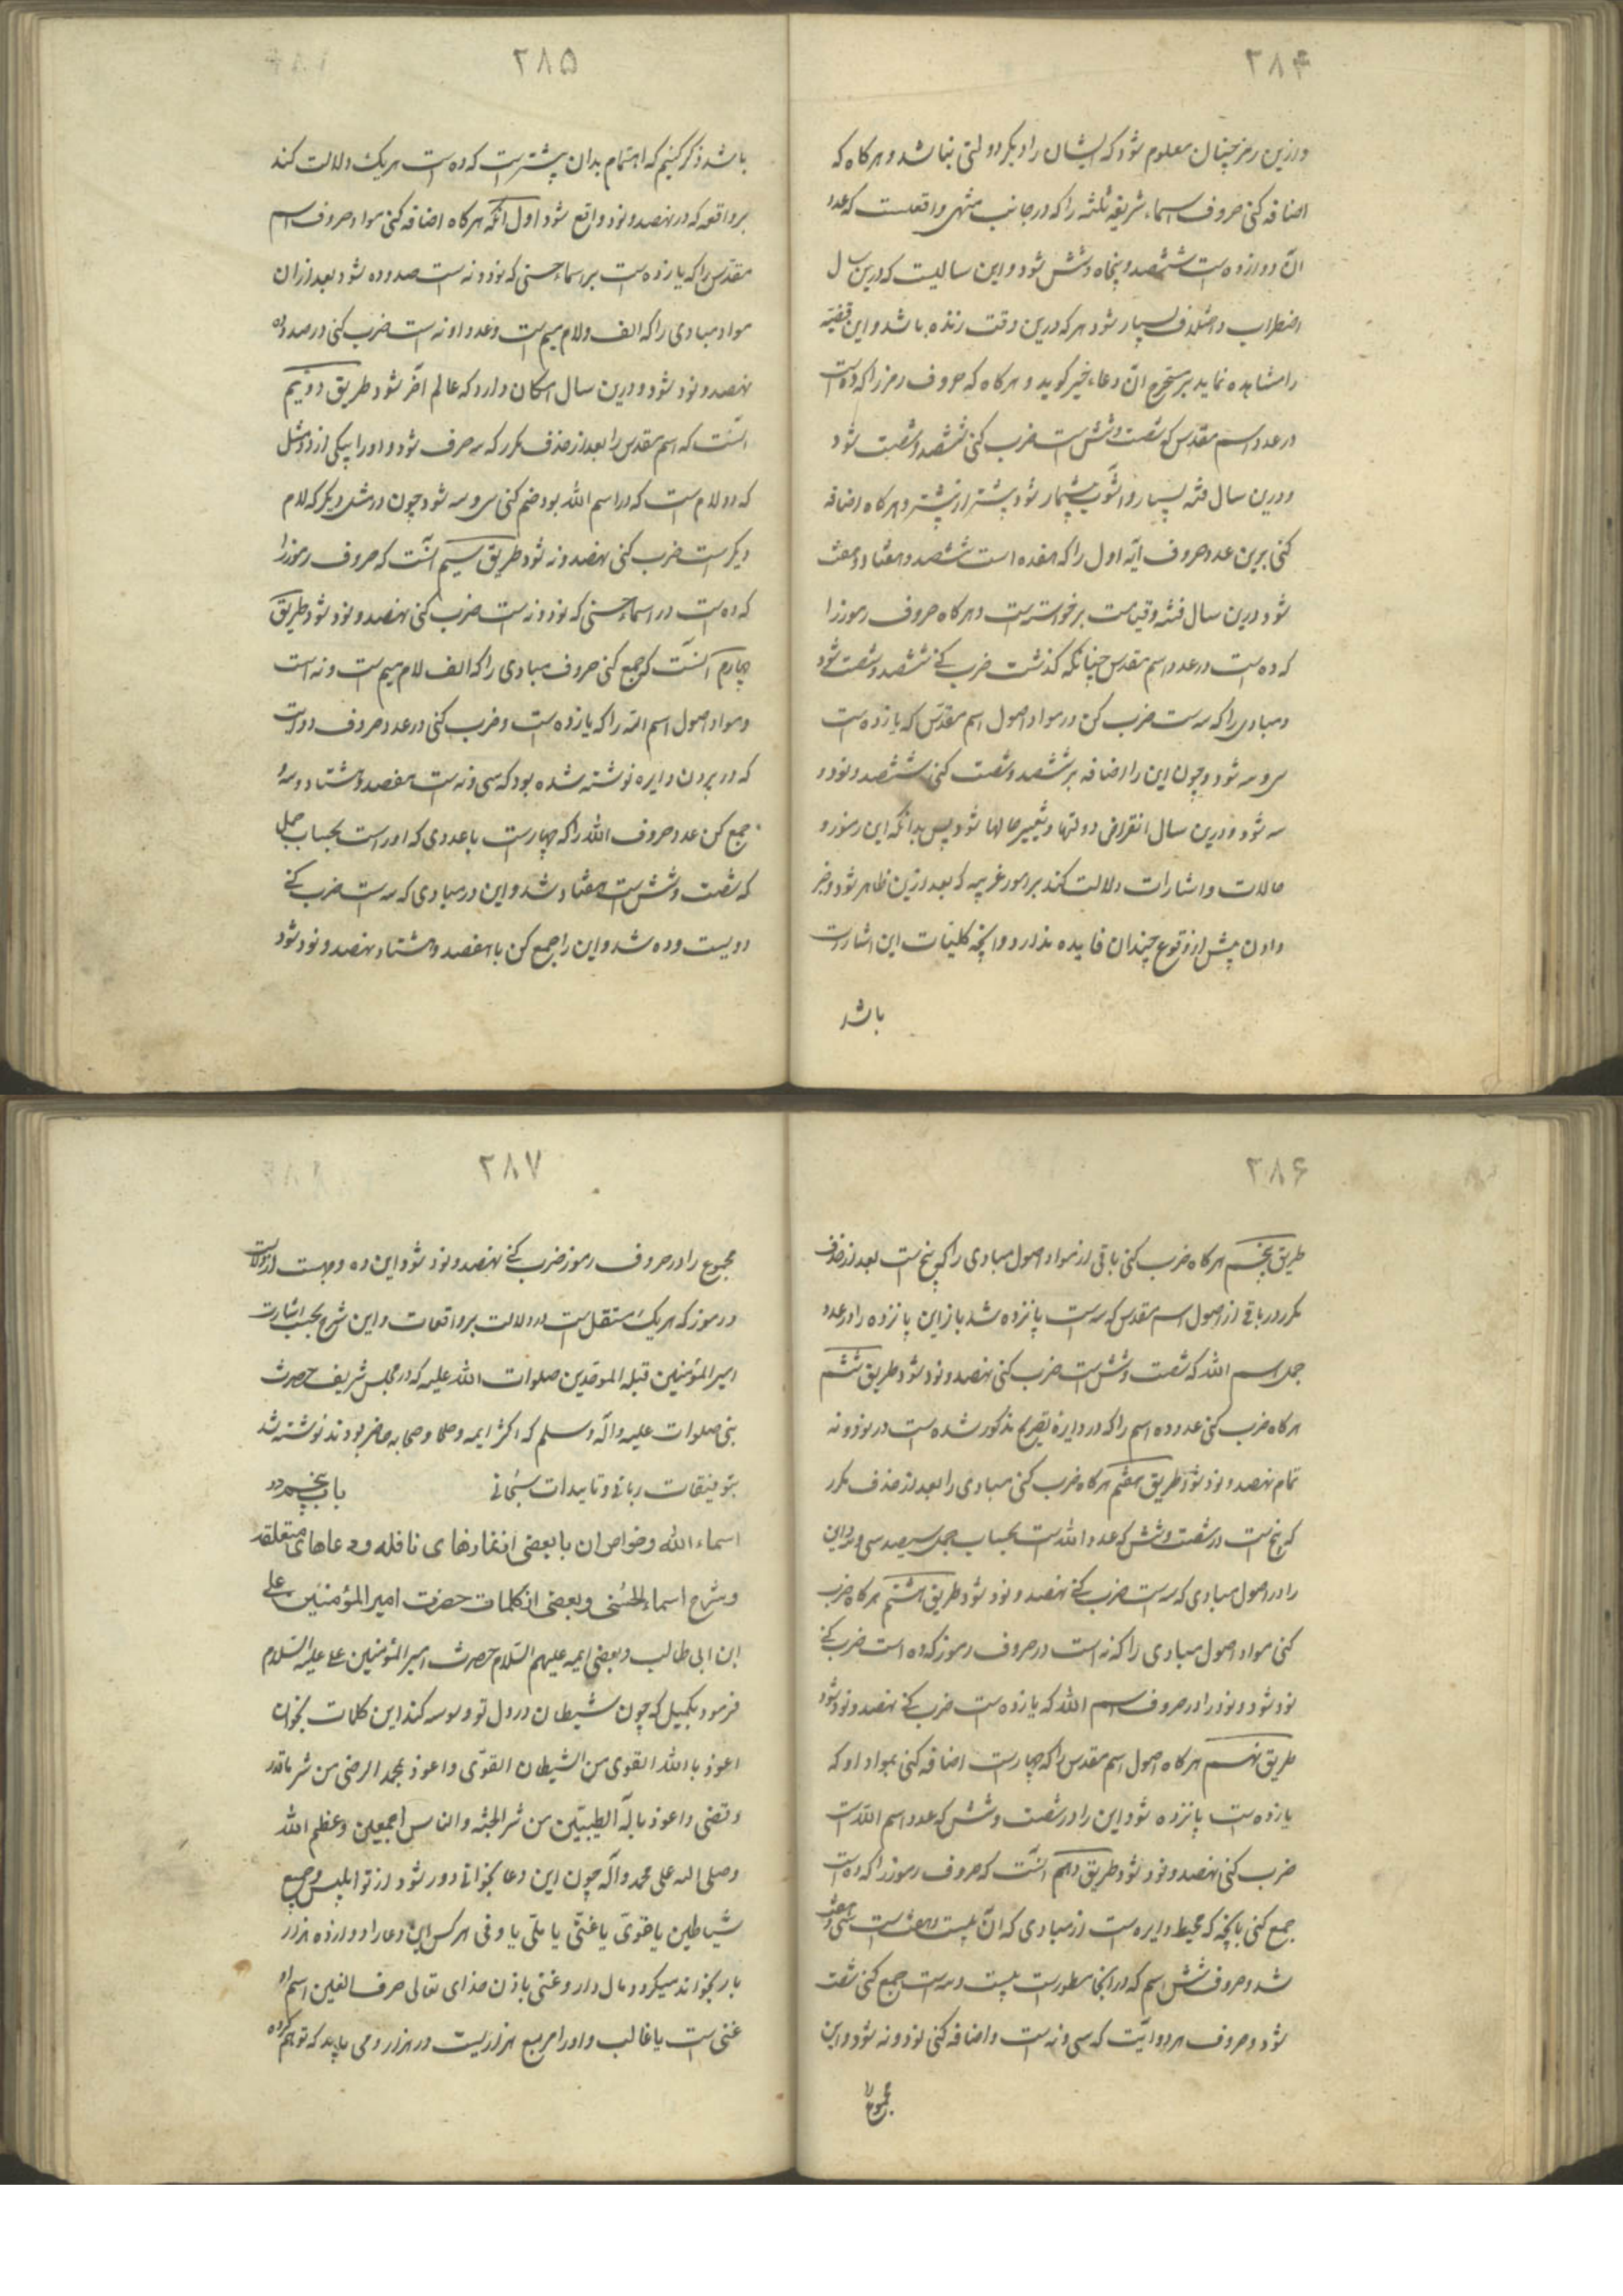 ۲۸۴
و ازین رمز چنان معلوم شود که ایشان را دیگر دولتی نباشد و هرگاه که
اضافه کنی حروف اسماء شریفه ثلثه را که در جانب منتهی واقعست که عدد
آن دوازده است ششصد و پنجاه و شش شود و این سالیست که درین سال
اضطراب و اختلاف بسیار شود هر که درین وقت زنده باشد و این قضیه
را مشاهده نماید بر مستخرج آن دعاء خیر گوید و هرگاه که حروف رمز را که ده است
در عدد اسم مقدس که شصت و شش است ضرب کنی ششصد و شصت شود
و درین سال فتنه بسیار و آشوب بیشمار شود بیشتر از پیشتر و هرگاه اضافه
کنی برین عدد حروف آیه اول را که هفده است ششصد و هفتاد و هفت
شود درین سال فتنه و قیامت برخواسته است و هرگاه حروف رموز را
که ده است در عدد اسم مقدس چنانکه گذشت ضرب کنی ششصد و شصت شود
و مبادی را که سه است ضرب کن در مواد اصول اسم مقدس که یازده است
سی و سه شود و چون این را اضافه بر ششصد و شصت کنی ششصد و نود و
سه شود و درین سال انقراض دولتها و تغییر حالها شود پس بدانکه این رموز و
حالات و اشارات دلالت کند بر امور غریبه که بعد ازین ظاهر شود و خبر
دادن پیش از وقوع چندان فایده ندارد و آنچه کلیات این اشارات
باشد
۲۸۵
باشد ذکر کنیم که اهتمام بدان بیشتر است که ده است هر یک دلالت کند
بر واقعه که در نهصد و نود واقع شود اول آنکه هرگاه اضافه کنی مواد حروف اسم
مقدس را که یازده است بر اسماء حسنی که نود و نه است صد و ده شود بعد از آن
مواد مبادی را که الف و لام میم است و عدد او نه است ضرب کنی در صد و ده
نهصد و نود شود و درین سال امکان دارد که عالم آخر شود طریق دویم
آنست که اسم مقدس را بعد از حذف مکرر که سه حرف شود و او را بیکی از دو مثل
که دو لام است که در اسم الله بود ضم کنی سی و سه شود چون در مثل دیگر که لام
دیگر است ضرب کنی نهصد و نه شود طریق سیم آنست که حروف رموز را
که ده است در اسماء حسنی که نود و نه است ضرب کنی نهصد و نود شود طریق
چهارم آنست که جمع کنی حروف مبادی را که الف لام میم است و نه است
و مواد اصول اسم الله را که یازده است و ضرب کنی در عدد حروف دو آیت
که در برون دایره نوشته شده بود که سی و نه است هفصد و هشتاد و سه و
جمع کن عدد حروف الله را که چهار است با عددی که او راست بحساب جمل
که شصت و شش است هفتاد شد و این در مبادی که سه است ضرب کنی
دویست و ده شد و این را جمع کن با هفصد و هشتاد نهصد و نود شود
۲۸۶
طریق پنجم هرگاه ضرب کنی باقی از مواد اصول مبادی را که پنج است بعد از حذف
مکرر در باقی از اصول اسم مقدس که سه است پانزده شد باز این پانزده را در عدد
جمل اسم الله که شصت و شش است ضرب کنی نهصد و نود شود طریق ششم
هرگاه ضرب کنی عدد ده اسم را که در دایره بصریح مذکور شده است در نود و نه
تمام نهصد و نود شود طریق هفتم هرگاه ضرب کنی مبادی را بعد از حذف مکرر
که پنج است در شصت و شش که عدد الله است بحساب جمل سیصد سی و شود این
را در اصول مبادی که سه است ضرب کنی نهصد و نود شود طریق هشتم هرگاه ضرب
کنی مواد اصول مبادی را که نه است در حروف رموز که ده است ضرب کنی
نود شود و نود را در حروف اسم الله که یازده است ضرب کنی نهصد و نود شود
طریق نهم هرگاه اصول اسم مقدس را که چهار است اضافه کنی بمواد او که
یازده است پانزده شود این را در شصت و شش که عدد اسم الله است
ضرب کنی نهصد و نود شود طریق دهم آنست که حروف رموز را که ده است
جمع کنی بآنچه که محیط دایره است از مبادی که آن بیست و هفت است سی و هفت
شد و حروف شش اسم که در آنجا مسطور است بیست و سه است جمع کنی شصت
شود و حروف هر دو آیت که سی و نه است و اضافه کنی نود و نه شود و این
مجموع را
۲۸۷
مجموع را در حروف رموز ضرب کنی نهصد و نود شود این ده وجهست از دلالات
و رموز که هر یک مستقل است در دلالت بر واقعات و این شرح بحسب اشارت
امیر المؤمنین قبلة الموحدین صلوات الله علیه که در مجلس شریف حضرت
نبی صلوات علیه و آله و سلم که اکثر ایمه و صلحا و صحابه حاضر بودند نوشته شد
بتوفیقات ربانی و تاییدات سبحانی باب پنجم در
اسماء الله و خواص ان با بعضی از نمازهای نافله و دعاهای متعلقه
و شرح اسماء الحسنی و بعضی از کلمات حضرت امیر المؤمنین علی
ابن ابی طالب و بعضی ایمه علیهم السلام حضرت امیر المؤمنین علی علیه السلام
فرمود بکمیل که چون شیطان در دل تو وسوسه کند این کلمات بخوان
اعوذ بالله القوی من الشیطان القوی و اعوذ بمحمد الرضی من شر ما قدر
و قضی و اعوذ باله الطیبین من شر الجنه و الناس اجمعین و عظم الله
و صلی الله علی محمد و آله چون این دعا بخوانی دور شود از تو ابلیس و جمیع
شیاطین یا قوی یا غنی یا ملی یا وفی هر کس این دعا را دوازده هزار
بار بخواند میگردد مال دار و غنی باذن خدای تعالی حرف الغین اسم او
غنی است یا غالب و او را مربع هزار یست در هزار و می باید که تو هم کرده